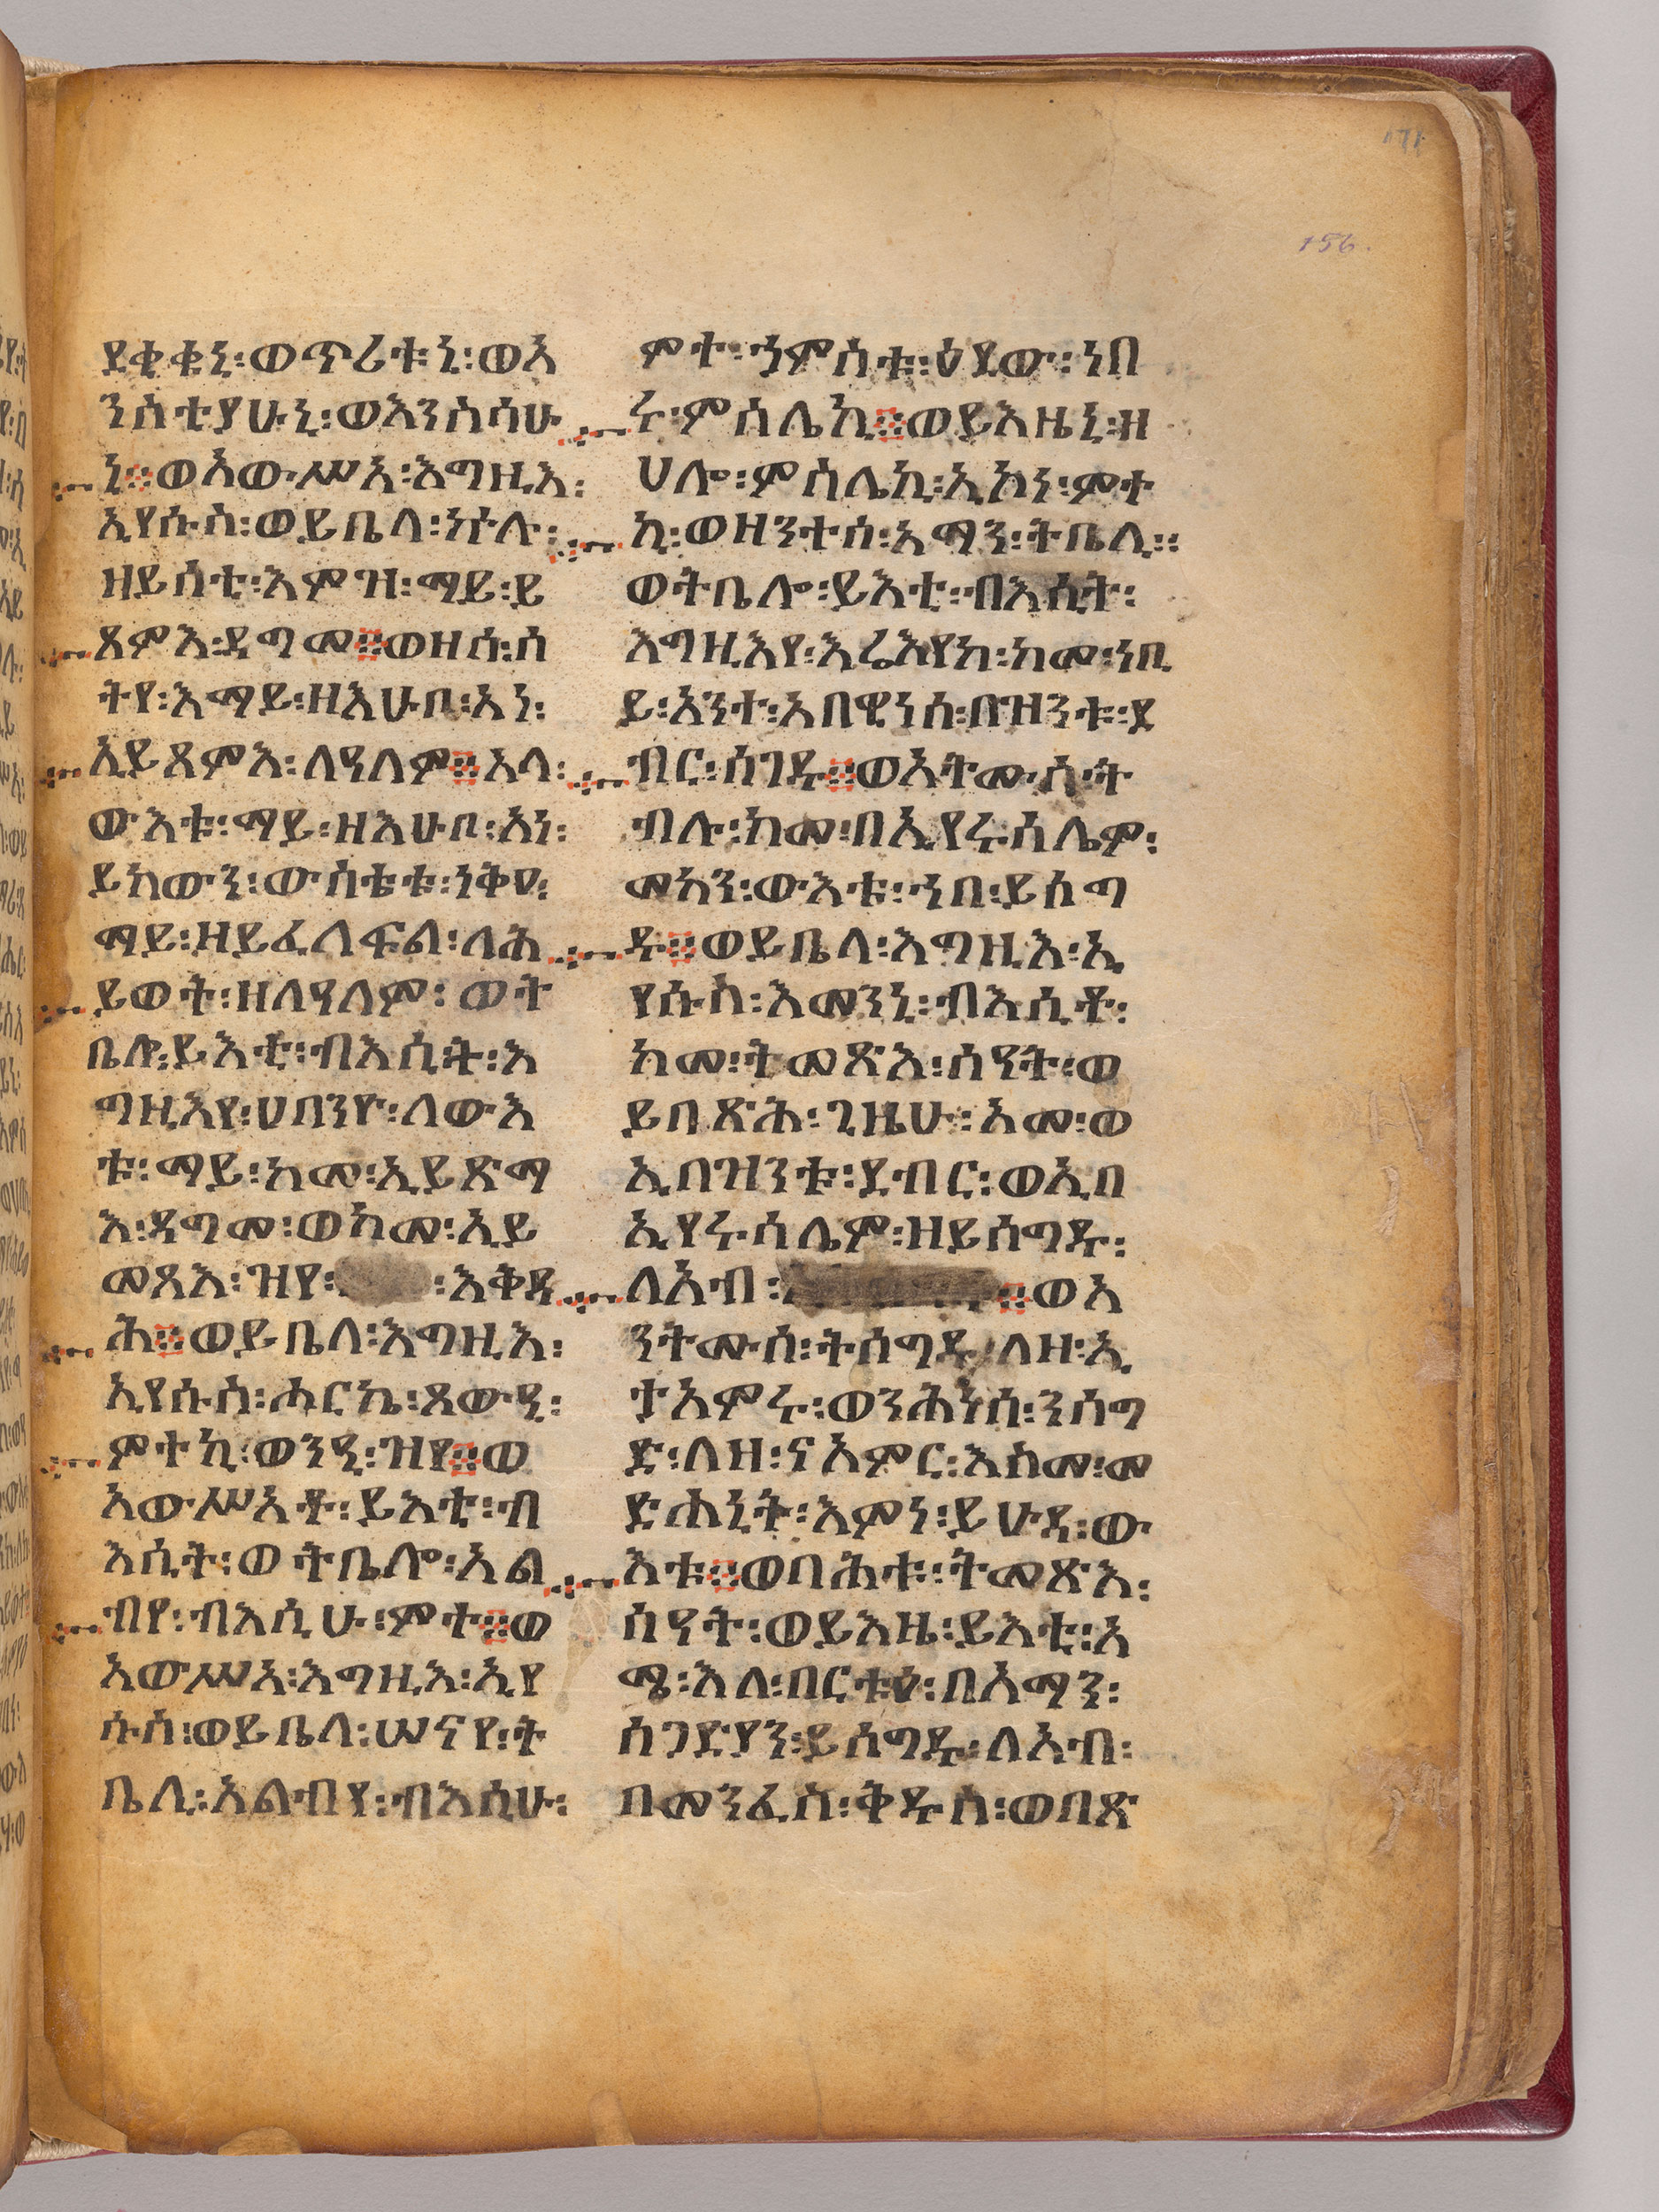 171
156.
ደቂቁኒ፡ወጥሪቱኒ፡ወአ
ንስቲያሁኒ፡ወእንስሳሁ
ኒ።ወአውሥአ፡እግዚእ፡
ኢየሱስ፡ወይቤላ፡ኵሉ፡
ዘይሰቲ፡እምዝ፡ማይ፡ይ
ጸምእ፡ዳግመ።ወዘሰ፡ሰ
ትየ፡እማይ፡ዘእሁቦ፡አነ፡
ኢይጸምእ፡ለዓለም።አላ፡
ውእቱ፡ማይ፡ዘእሁቦ፡አነ፡
ይከውን፡ውስቴቱ፡ነቅዐ፡
ማይ፡ዘይፈለፍል፡ለሕ
ይወት፡ዘለዓለም፡ወት
ቤሎ፡ይእቲ፡ብእሲት፡እ
ግዚእየ፡ሀበንዮ፡ለውእ
ቱ፡ማይ፡ከመ፡ኢይጽማ
እ፡ዳግመ፡ወከመ፡ኢይ
መጻእ፡ዝየ፡ ፡እቅዳ
ሕ።ወይቤላ፡እግዚእ፡
ኢየሱስ፡ሖርኬ፡ጸውዒ፡
ምተኪ፡ወንዒ፡ዝየ።ወ
አውሥአቶ፡ይእቲ፡ብ
እሲት፡ወትቤሎ፡አል
ብየ፡ብእሲሁ፡ምተ።ወ
አውሥአ፡እግዚእ፡ኢየ
ሱስ፡ወይቤላ፡ሠናየ፡ት
ቤሊ፡አልብየ፡ብእሲሁ፡
ምተ፡ኀምስቱ፡ዕደው፡ነበ
ሩ፡ምስሌኪ።ወይእዜኒ፡ዘ
ሀሎ፡ምስሌኪ፡ኢኮነ፡ምተ
ኪ፡ወዘንተሰ፡አማን፡ትቤሊ።
ወትቤሎ፡ይእቲ፡ብእሲት፡
እግዚእየ፡እሬእየከ፡ከመ፡ነቢ
ይ፡አንተ፡አበዊነሰ፡በዝንቱ፡ደ
ብር፡ሰገዱ።ወአትሙሰ፡ት
ብሉ፡ከመ፡በኢየሩሳሌም፡
መካን፡ውእቱ፡ኀበ፡ይሰግ
ዱ።ወይቤላ፡እግዚእ፡ኢ
የሱስ፡እመንኒ፡ብእሲቶ፡
ከመ፡ትመጽእ፡ሰዓት፡ወ
ይበጽሕ፡ጊዜሁ፡አመ፡ወ
ኢበዝንቱ፡ደብር፡ወኢበ
ኢየሩሳሌም፡ዘይሰግዱ፡
ለአብ፡ ።ወአ
ንትሙሰ፡ትሰግዱ፡ለዘ፡ኢ
ተአምሩ፡ወንሕነሰ፡ንሰግ
ድ፡ለዘ፡ናአምር፡እስመ፡መ
ድሐኒት፡እምነ፡ይሁዳ፡ው
እቱ።ወበሕቱ፡ትመጽእ፡
ሰዓት፡ወይእዜ፡ይእቲ፡አ
ሜ፡እለ፡በርቱዕ፡በአማን፡
ሰጋድያን፡ይሰግዱ፡ለአብ፡
በመንፈስ፡ቅዱስ፡ወበጽ